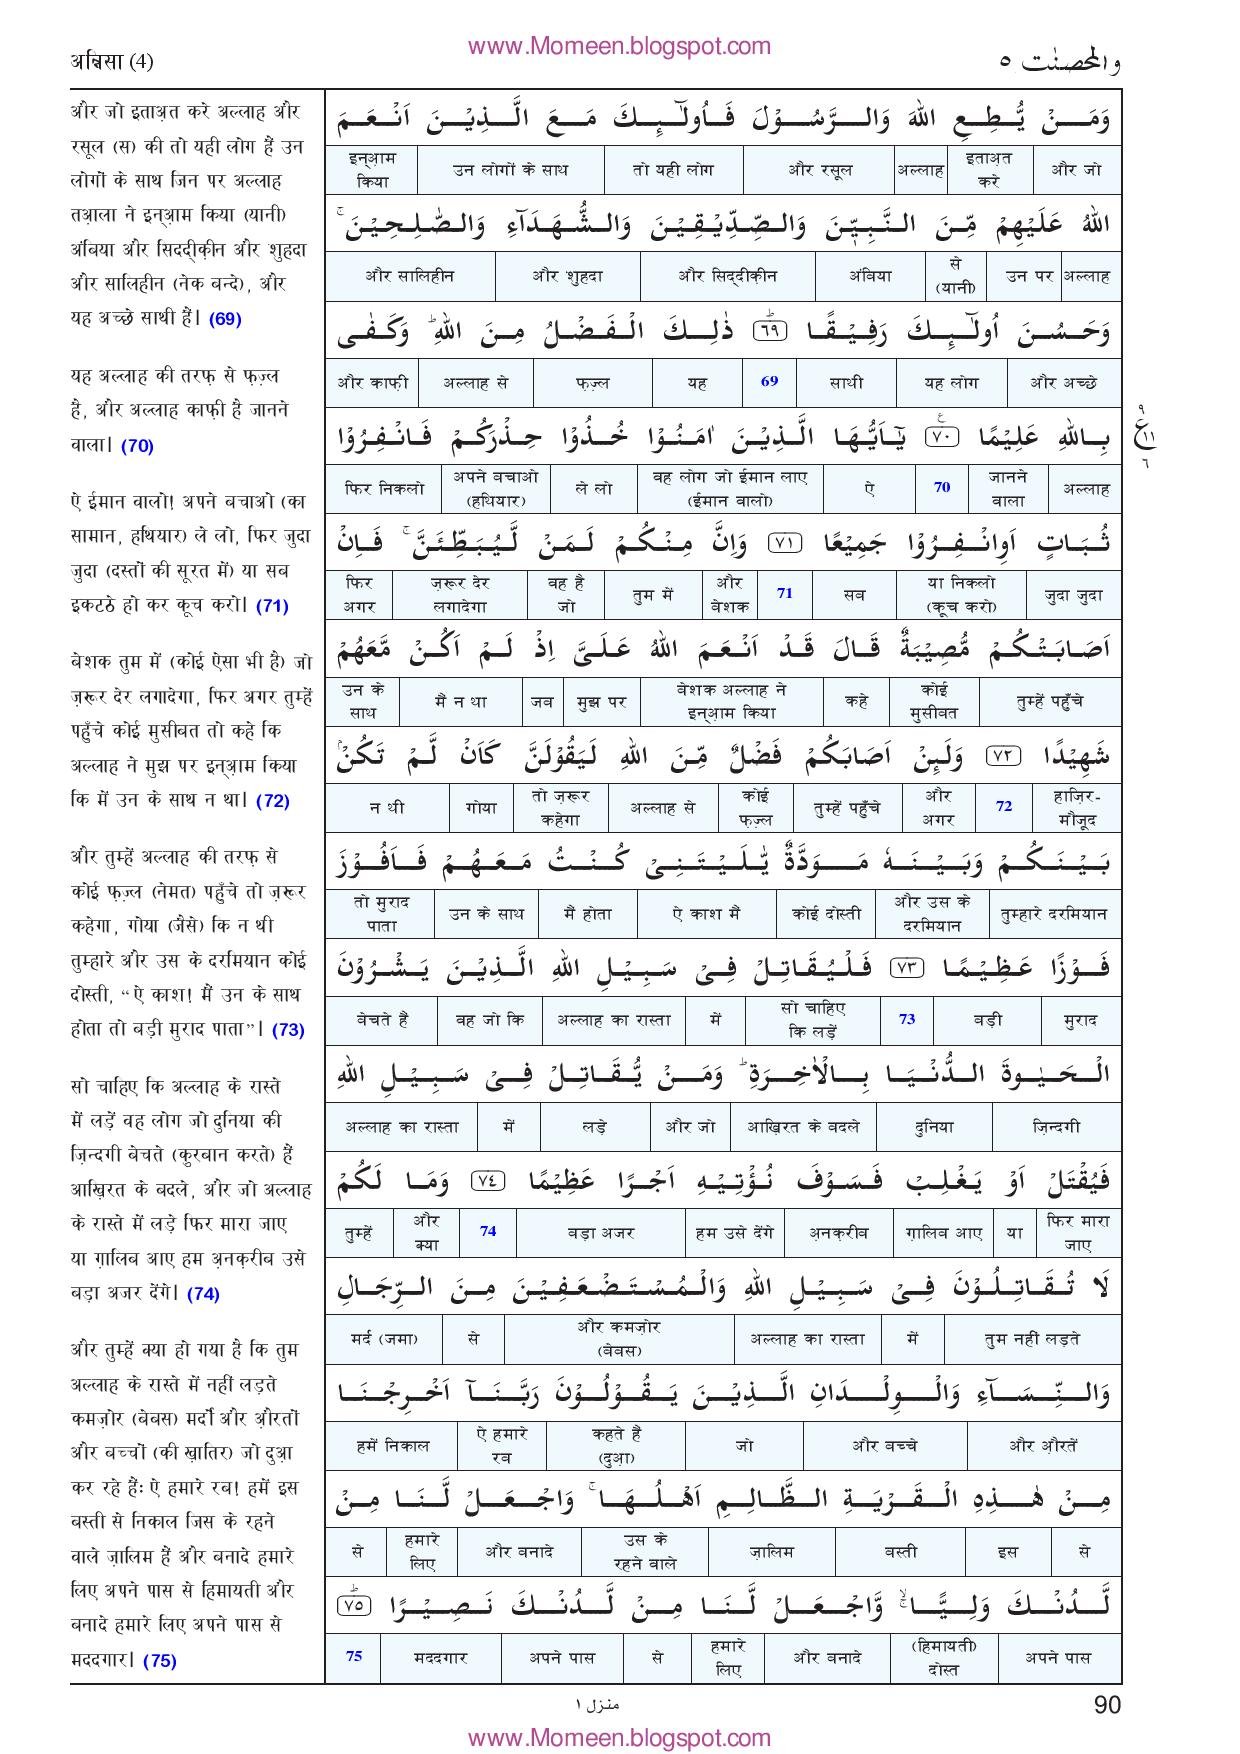 www.Momeen.blogspot.com
अन्निसा (4)
والمحصنٰت ٥
और जो इताअ़त करे अल्लाह और
रसूल (स) की तो यही लोग हैं उन
लोगों के साथ जिन पर अल्लाह
तआ़ला ने इन्आ़म किया (यानी)
अंबिया और सिद्दीक़ीन और शुहदा
और सालिहीन (नेक बन्दे), और
यह अच्छे साथी हैं। (69)
यह अल्लाह की तरफ़ से फ़ज़्ल
है, और अल्लाह काफ़ी है जानने
वाला। (70)
ऐ ईमान वालो! अपने बचाओ (का
सामान, हथियार) ले लो, फिर जुदा
जुदा (दस्तों की सूरत में) या सब
इकटठे हो कर कूच करो। (71)
बेशक तुम में (कोई ऐसा भी है) जो
ज़रूर देर लगादेगा, फिर अगर तुम्हें
पहुँचे कोई मुसीबत तो कहे कि
अल्लाह ने मुझ पर इन्आ़म किया
कि में उन के साथ न था। (72)
और तुम्हें अल्लाह की तरफ़ से
कोई फ़ज़्ल (नेमत) पहुँचे तो ज़रूर
कहेगा, गोया (जैसे) कि न थी
तुम्हारे और उस के दरमियान कोई
दोस्ती, “ऐ काश! मैं उन के साथ
होता तो बड़ी मुराद पाता”। (73)
सो चाहिए कि अल्लाह के रास्ते
में लड़ें वह लोग जो दुनिया की
ज़िन्दगी बेचते (कुरबान करते) हैं
आख़िरत के बदले, और जो अल्लाह
के रास्ते में लड़े फिर मारा जाए
या ग़ालिब आए हम अ़नक़रीब उसे
बड़ा अजर देंगे। (74)
और तुम्हें क्या हो गया है कि तुम
अल्लाह के रास्ते में नहीं लड़ते
कमज़ोर (बेबस) मर्दों और औ़रतों
और बच्चों (की ख़ातिर) जो दुआ़
कर रहे हैंः ऐ हमारे रब! हमें इस
बस्ती से निकाल जिस के रहने
वाले ज़ालिम हैं और बनादे हमारे
लिए अपने पास से हिमायती और
बनादे हमारे लिए अपने पास से
मददगार। (75)
وَمَنْ يُّطِعِ اللّٰهَ وَالرَّسُوْلَ فَاُولٰٓىِٕكَ مَعَ الَّذِيْنَ اَنْعَمَ
और जो इताअ़त करे अल्लाह और रसूल तो यही लोग उन लोगों के साथ इन्आ़म किया
اللّٰهُ عَلَيْهِمْ مِّنَ النَّبِيّٖنَ وَالصِّدِّيْقِيْنَ وَالشُّهَدَآءِ وَالصّٰلِحِيْنَ ۚ
अल्लाह उन पर से (यानी) अंबिया और सिद्दीक़ीन और शुहदा और सालिहीन
وَحَسُنَ اُولٰٓىِٕكَ رَفِيْقًا ﴿٦٩﴾ ذٰلِكَ الْفَضْلُ مِنَ اللّٰهِ ؕ وَكَفٰى
और अच्छे यह लोग साथी 69 यह फ़ज़्ल अल्लाह से और काफ़ी
بِاللّٰهِ عَلِيْمًا ﴿٧٠﴾ يٰٓاَيُّهَا الَّذِيْنَ اٰمَنُوْا خُذُوْا حِذْرَكُمْ فَانْفِرُوْا
٩ ع ١١ ٦
अल्लाह जानने वाला 70 ऐ वह लोग जो ईमान लाए (ईमान वालो) ले लो अपने बचाओ (हथियार) फिर निकलो
ثُبَاتٍ اَوِانْفِرُوْا جَمِيْعًا ﴿٧١﴾ وَاِنَّ مِنْكُمْ لَمَنْ لَّيُبَطِّئَنَّ ۚ فَاِنْ
जुदा जुदा या निकलो (कूच करो) सब 71 और बेशक तुम में वह है जो ज़रूर देर लगादेगा फिर अगर
اَصَابَتْكُمْ مُّصِيْبَةٌ قَالَ قَدْ اَنْعَمَ اللّٰهُ عَلَيَّ اِذْ لَمْ اَكُنْ مَّعَهُمْ
तुम्हें पहुँचे कोई मुसीबत कहे बेशक अल्लाह ने इन्आ़म किया मुझ पर जब मैं न था उन के साथ
شَهِيْدًا ﴿٧٢﴾ وَلَىِٕنْ اَصَابَكُمْ فَضْلٌ مِّنَ اللّٰهِ لَيَقُوْلَنَّ كَاَنْ لَّمْ تَكُنْۢ
हाज़िर-मौजूद 72 और अगर तुम्हें पहुँचे कोई फ़ज़्ल अल्लाह से तो ज़रूर कहेगा गोया न थी
بَيْنَكُمْ وَبَيْنَهٗ مَوَدَّةٌ يّٰلَيْتَنِيْ كُنْتُ مَعَهُمْ فَاَفُوْزَ
तुम्हारे दरमियान और उस के दरमियान कोई दोस्ती ऐ काश मैं मैं होता उन के साथ तो मुराद पाता
فَوْزًا عَظِيْمًا ﴿٧٣﴾ فَلْيُقَاتِلْ فِيْ سَبِيْلِ اللّٰهِ الَّذِيْنَ يَشْرُوْنَ
मुराद बड़ी 73 सो चाहिए कि लड़ें में अल्लाह का रास्ता वह जो कि बेचते हैं
الْحَيٰوةَ الدُّنْيَا بِالْاٰخِرَةِ ؕ وَمَنْ يُّقَاتِلْ فِيْ سَبِيْلِ اللّٰهِ
ज़िन्दगी दुनिया आख़िरत के बदले और जो लड़े में अल्लाह का रास्ता
فَيُقْتَلْ اَوْ يَغْلِبْ فَسَوْفَ نُؤْتِيْهِ اَجْرًا عَظِيْمًا ﴿٧٤﴾ وَمَا لَكُمْ
फिर मारा जाए या ग़ालिब आए अ़नक़रीब हम उसे देंगे बड़ा अजर 74 और क्या तुम्हें
لَا تُقَاتِلُوْنَ فِيْ سَبِيْلِ اللّٰهِ وَالْمُسْتَضْعَفِيْنَ مِنَ الرِّجَالِ
तुम नहीं लड़ते में अल्लाह का रास्ता और कमज़ोर (बेबस) से मर्द (जमा)
وَالنِّسَآءِ وَالْوِلْدَانِ الَّذِيْنَ يَقُوْلُوْنَ رَبَّنَآ اَخْرِجْنَا
और औ़रतें और बच्चे जो कहते हैं (दुआ़) ऐ हमारे रब हमें निकाल
مِنْ هٰذِهِ الْقَرْيَةِ الظَّالِمِ اَهْلُهَا ۚ وَاجْعَلْ لَّنَا مِنْ
से इस बस्ती ज़ालिम उस के रहने वाले और बनादे हमारे लिए से
لَّدُنْكَ وَلِيًّا ۙۚ وَّاجْعَلْ لَّنَا مِنْ لَّدُنْكَ نَصِيْرًا ﴿٧٥﴾
अपने पास (हिमायती) दोस्त और बनादे हमारे लिए से अपने पास मददगार 75
منزل ١
90
www.Momeen.blogspot.com